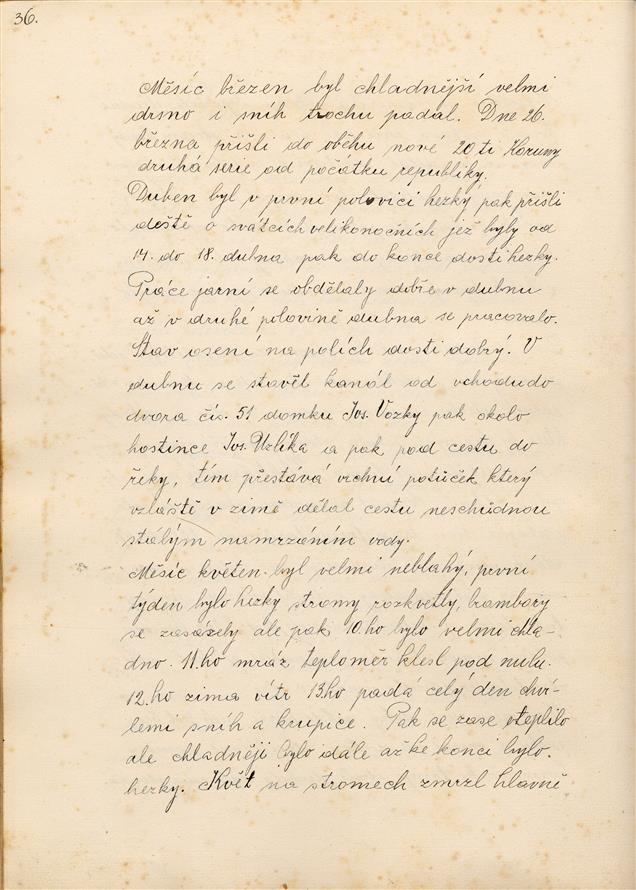 36.
Měsíc březen byl chladnější velmi
drsno i sníh trochu padal. Dne 26.
března přišli do oběhu nové 20 ti Koruny
druhá serie od počátku republiky.
Duben byl v první polovici hezký pak přišli
deště o svátcích velikonočních jež byly od
14. do 18. dubna pak do konce dosti hezky.
Práce jarní se obdělaly dobře v dubnu
až v druhé polovině dubna se pracovalo.
Stav osení na polích dosti dobrý. V
dubnu se stavěl kanál od vchodu do
dvora čís. 51 domku Jos. Vozky pak okolo
hostince Jos. Uzlíka a pak pod cestu do
řeky, tím přestává vrchní potůček který
vzláště v zimě dělal cestu neschůdnou
stálým namrzáním vody.
Měsíc květen byl velmi neblahý, první
týden bylo hezky stromy rozkvetly, brambory
se zasazely ale pak 10.ho bylo velmi chla-
dno. 11.ho mráz teploměr klesl pod nulu.
12.ho zima vítr 13.ho padá celý den chví-
lemi sníh a krupice. Pak se zase oteplilo
ale chladněji bylo dále až ke konci bylo
hezky. Květ na stromech zmrzl hlavně